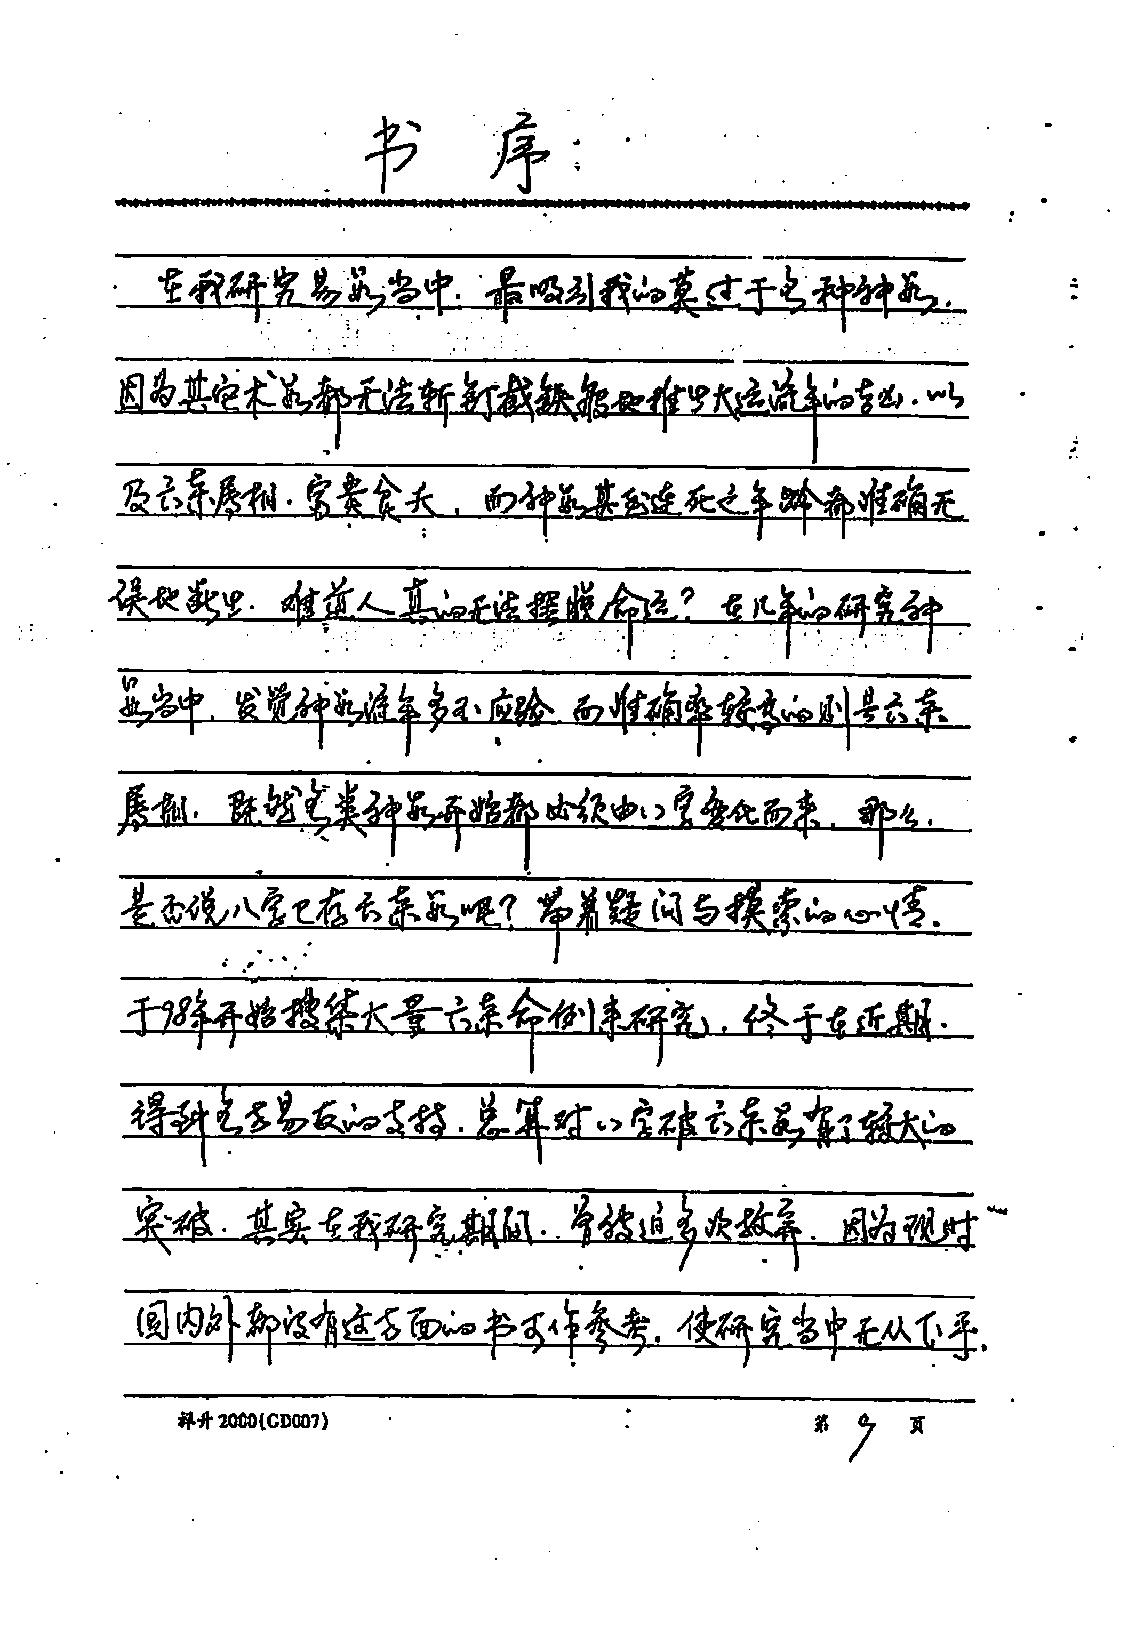 书 序:
在我研究易数当中.最吸引我的莫过于各种神数.
因为其它术数都无法斩钉截铁般地推出大运流年的吉凶.以
及六亲属相.富贵贫夭,而神数甚至连死之年龄都准确无
误地断出.难道人真的无法摆脱命运?在几年的研究神
数当中,发觉神数流年多不应验.而准确率较高的则是六亲
属相.既然各类神数开始都必须由八字变化而来,那么,
是否说八字已存六亲数呢?带着疑问与摸索的心情.
于98年开始搜集大量六亲命例来研究,终于在近期.
得到各方易友的支持.总算对八字破六亲数有了较大的
突破.其实在我研究期间.曾被迫多次放弃.因为现时
国内外都没有这方面的书可作参考.使研究当中无从下手.
科升2000(CD007) 第 9 页